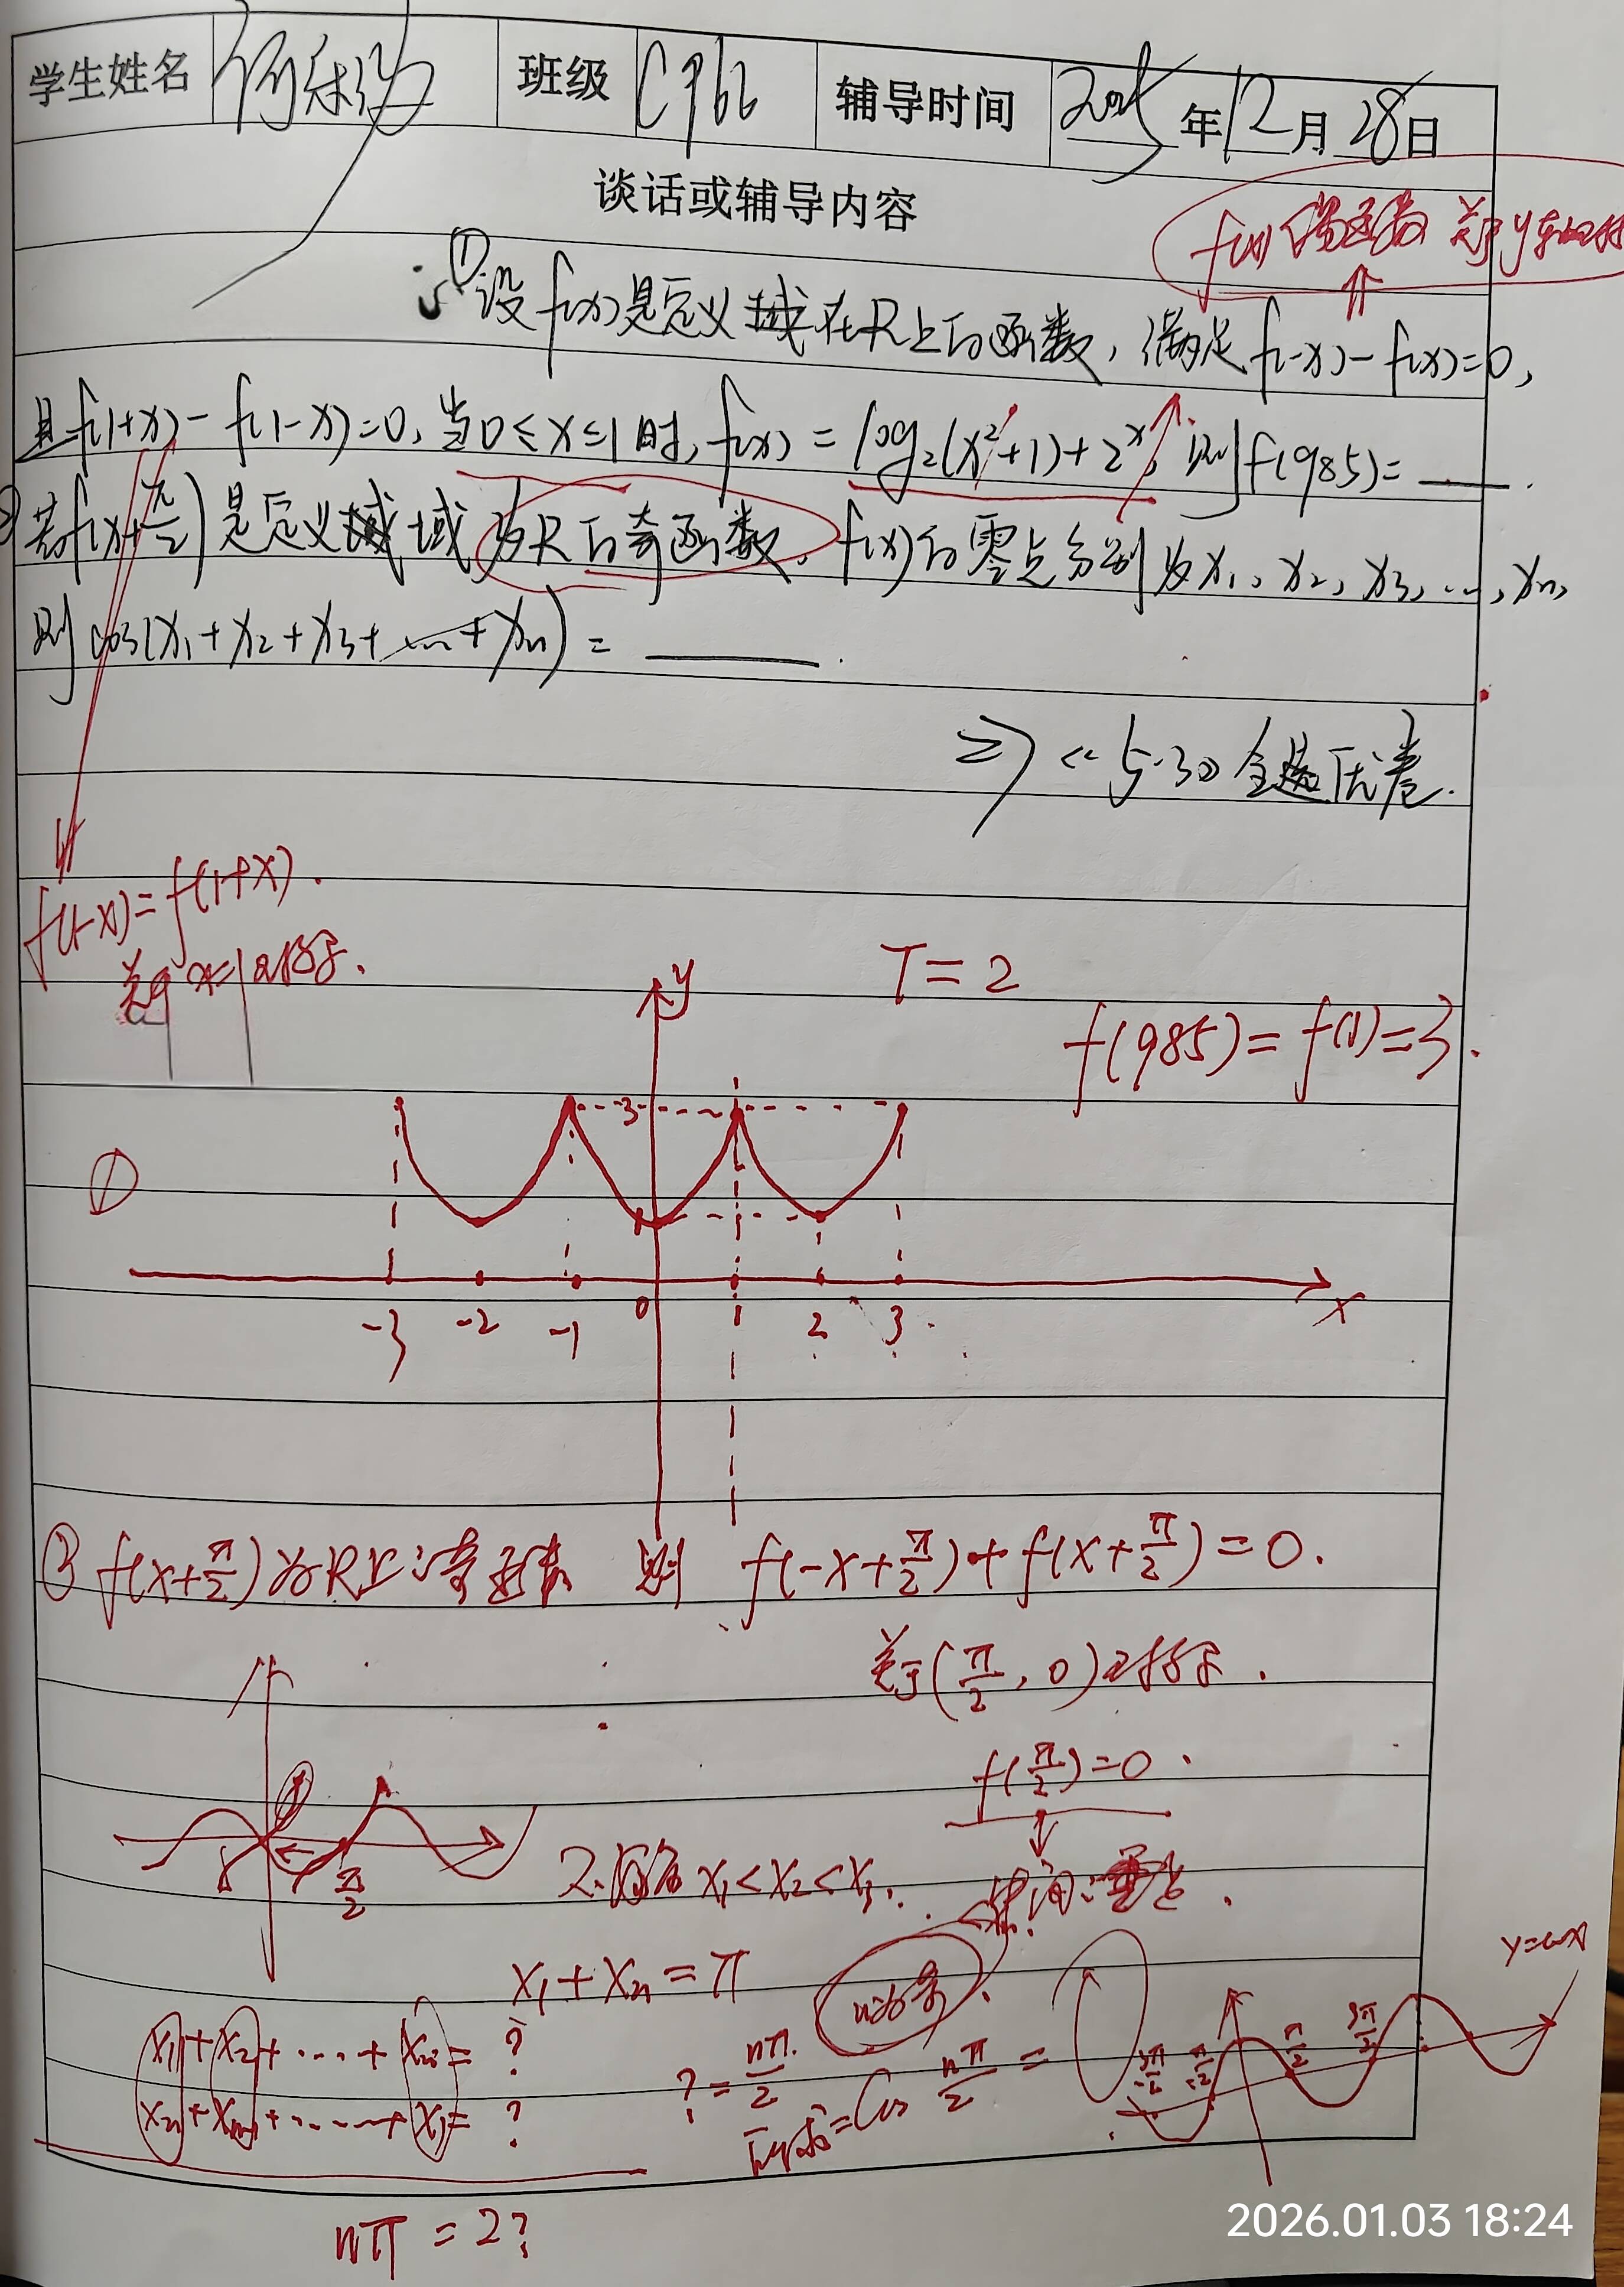 学生姓名 班级 C962 辅导时间 2025年12月28日
谈话或辅导内容
f(x)偶函数 关于y轴对称
①设f(x)是定义域在R上的函数，满足f(-x)-f(x)=0,
且f(1+x)-f(1-x)=0,当0≤x≤1时,f(x)=log₂(x²+1)+2ˣ,则f(985)=____.
②若f(x+π/2)是定义域为R的奇函数，f(x)的零点分别为x₁,x₂,x₃,…,xₙ,
则cos(x₁+x₂+x₃+…+xₙ)=____.
⇒《5·3》全选优卷.
f(1-x)=f(1+x).
关于x=1对称.
T=2
f(985)=f(1)=3.
①
y
3
1
-3 -2 -1 0 1 2 3 x
② f(x+π/2)为R上的奇函数 则 f(-x+π/2)+f(x+π/2)=0.
关于(π/2,0)对称.
f(π/2)=0.
π/2
不妨令x₁<x₂<x₃..
中间的零点.
x₁+xₙ=π
n为奇
y=cosx
-3π/2 -π/2 π/2 3π/2
x₁+x₂+…+xₙ=?
xₙ+xₙ₋₁+……+x₁=?
?=nπ/2
所求=Cos nπ/2=0
nπ=2?
2026.01.03 18:24